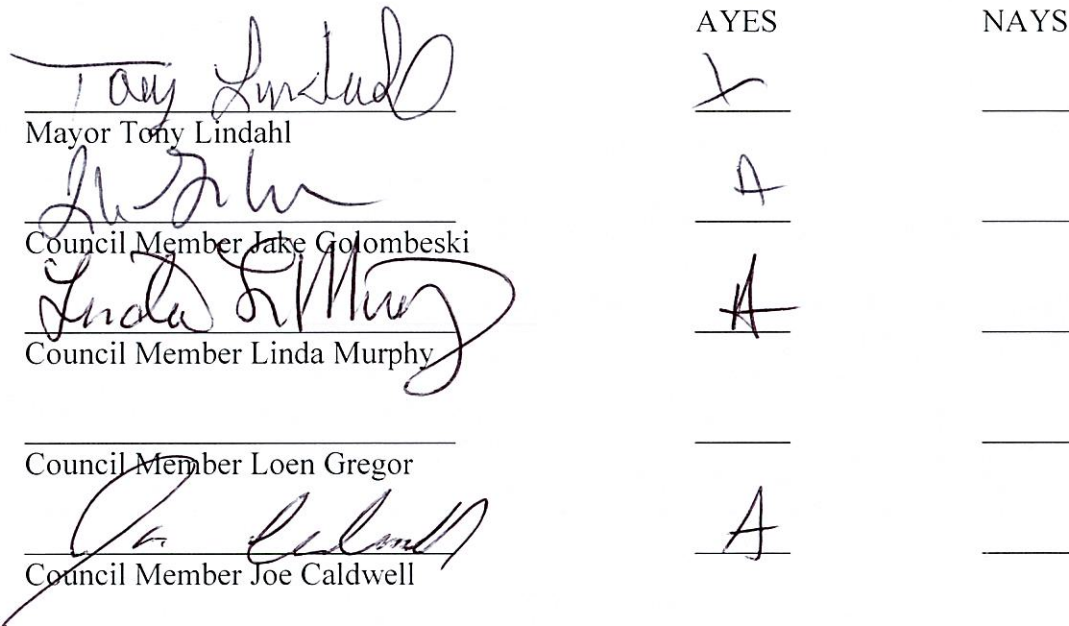 AYES NAYS
Tony Lindahl X
Mayor Tony Lindahl
A
Council Member Jake Golombeski
Linda L Murphy A
Council Member Linda Murphy
Council Member Loen Gregor
Joe Caldwell A
Council Member Joe Caldwell